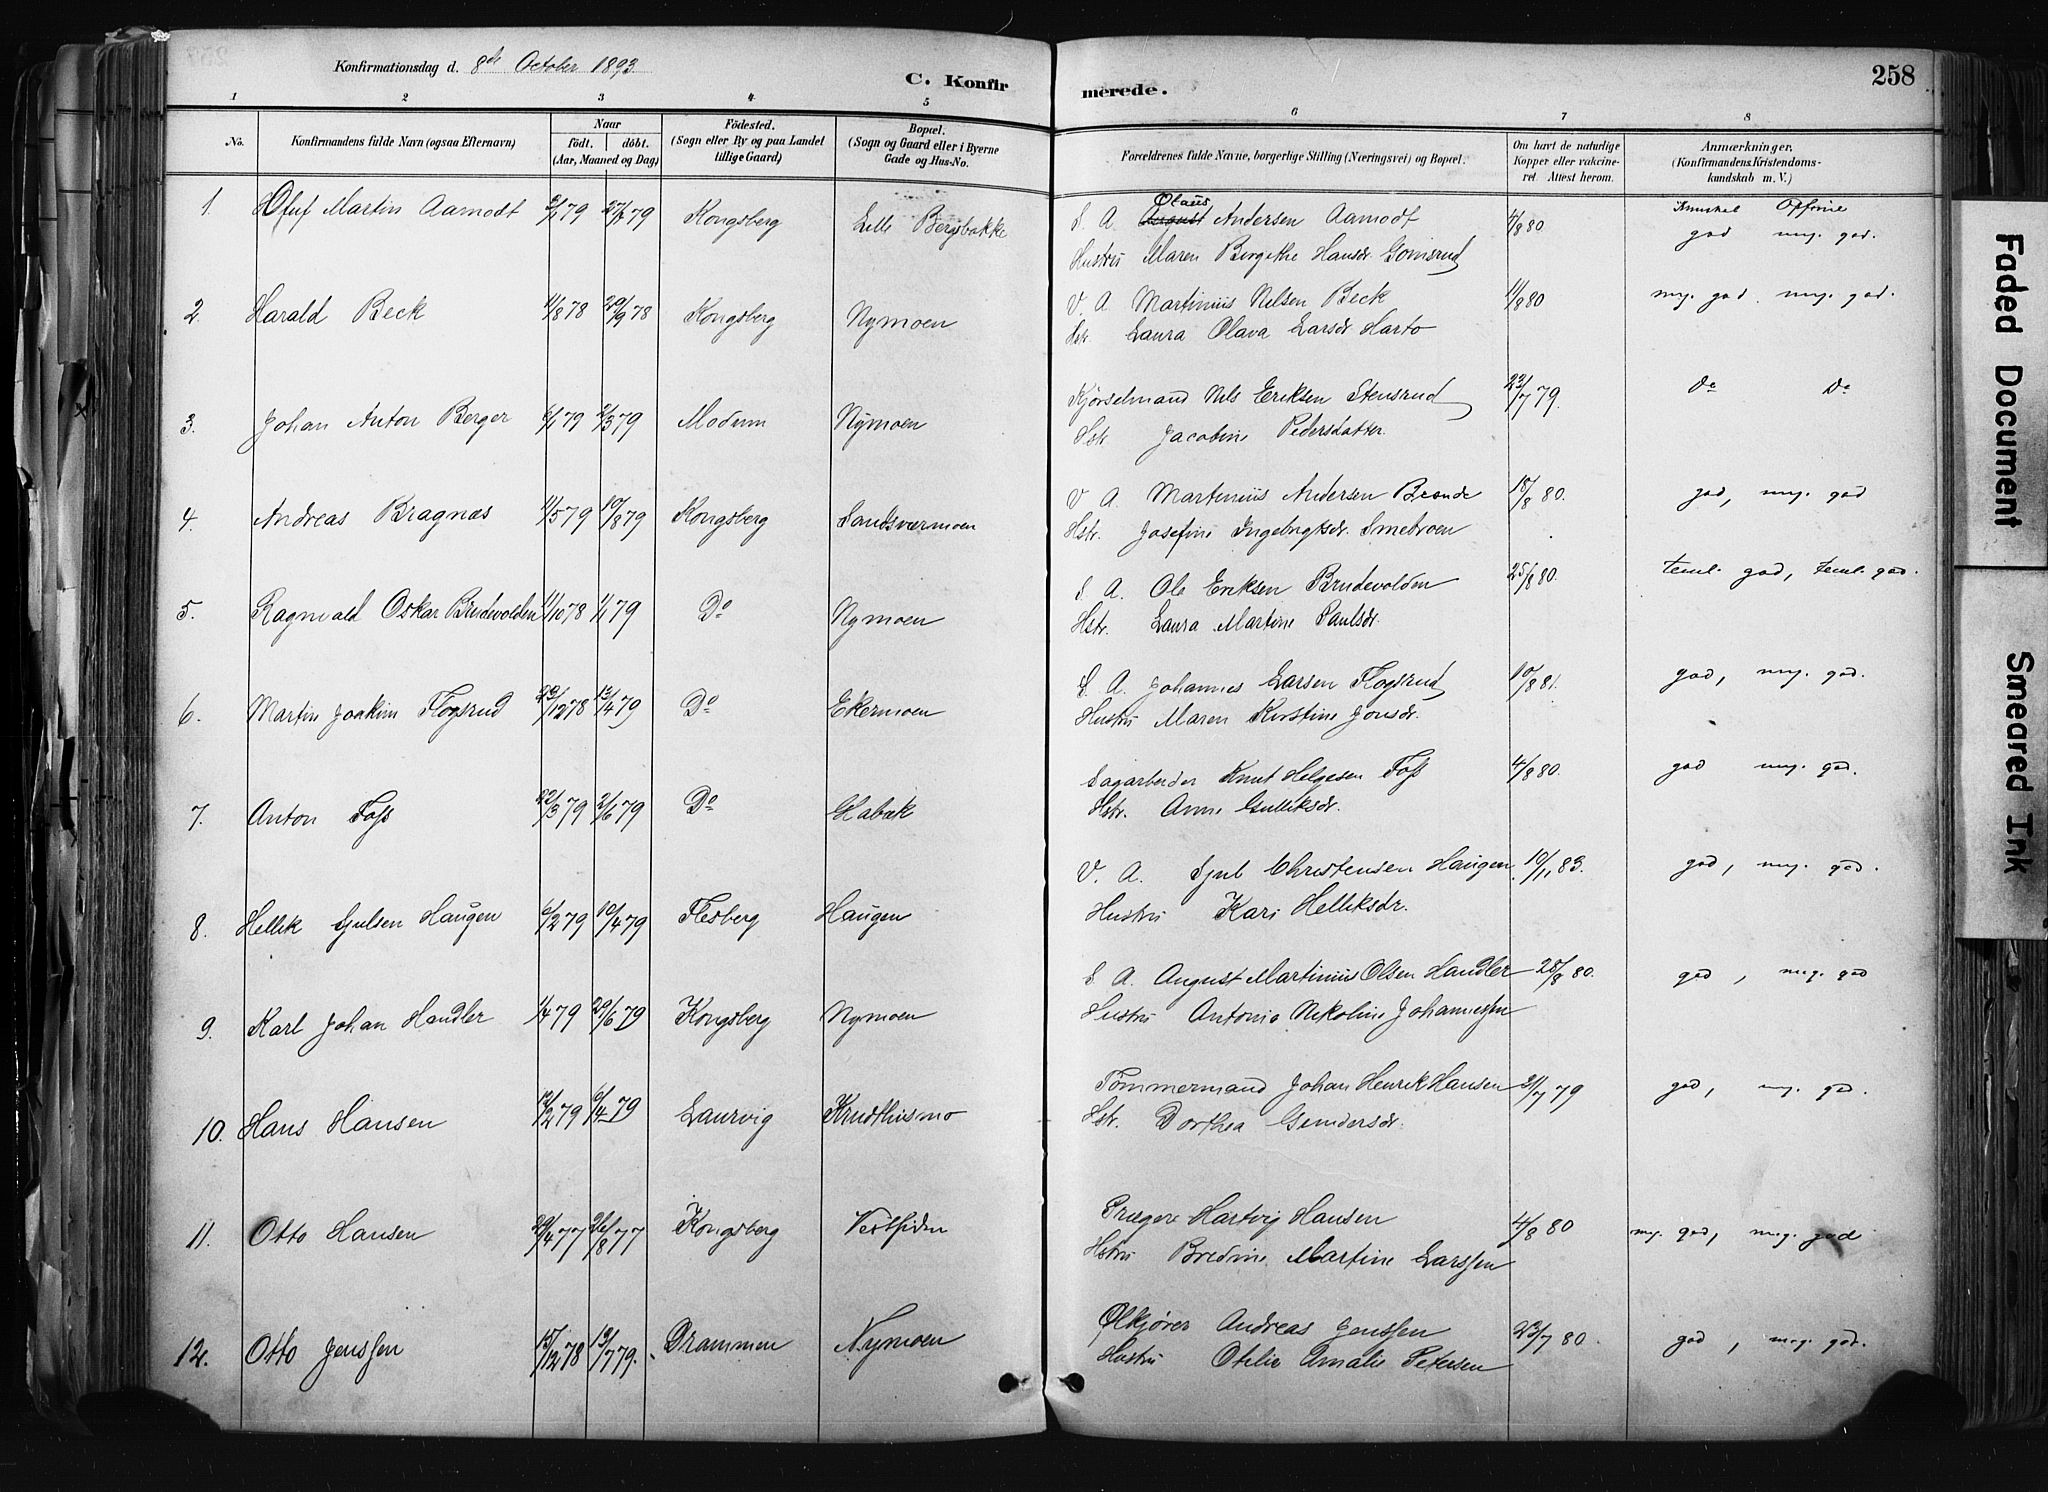 Konfirmationsdag d. 8de October 1893. C. Konfirmerede. 258
1 2 3 4 5 6 7 8
No. Konfirmandens fulde Navn (ogsaa Efternavn) Naar født. døbt. (Aar, Maaned og Dag) Fødested. (Sogn eller By og paa Landet tillige Gaard) Bopæl. (Sogn og Gaard eller i Byerne Gade og Hus-No. Forældrenes fulde Navne, borgerlige Stilling (Næringsvei) og Bopæl. Om havt de naturlige Kopper eller vaccineret. Attest herom. Anmærkninger. (Konfirmandens Kristendomskundskab m. V.)
1. Oluf Martin Aamodt 27/7 79 Kongsberg Lille Bergsbakke S. A. August Olaus Andersen Aamodt 4/8 80 Kunskab Opførsel god meg. god.
Hustru Maren Birgithe Hansdr. Gomsrud
2. Harald Beck 11/8 78 29/9 78 Kongsberg Nymoen V. A. Martinius Nilsen Beck 11/8 80 meg. god. meg. god.
Hstr. Laura Olava Larsdr Harto
3. Johan Anton Berger 6/1 79 2/3 79 Modum Nymoen Kjørselmand Nils Eriksen Stensrud 23/7 79. Do Do
Hstr. Jacobine Pedersdatter
4. Andreas Bragnæs 11/5 79 10/8 79 Kongsberg Sandsværmoen V. A. Martinius Andersen 18/8 80. god, meg. god
Hstr. Josefine Ingebrigtsdr. Smebroen
5. Ragnvald Oskar Brudevolden 11/10 78 1/1 79 Do Nymoen S. A. Ole Eriksen Brudevolden 25/8 80. teml. god, teml. god.
Hstr. Laura Martine Paulsdr.
6. Martin Joakim Flogsrud 29/12 78 13/4 79 Do Ekermoen S. A. Johannes Larsen Flogsrud 10/8 81. god, meg. god.
Hustru Maren Kirstine Jonsdr.
7. Anton Foss 22/3 79 2/6 79 Do Habæk Sagarbeider Knut Helgesen Foss 4/8 80. god meg. god.
Hstr. Anne Gulliksdr.
8. Hellik Sjulsen Haugen 6/2 79 10/4 79 Flesberg Haugen V. A. Sjul Christensen Haugen 10/11 83. god, meg. god.
Hustru Kari Helliksdr.
9. Karl Johan Handler 1/4 79 29/6 79 Kongsberg Nymoen S. A. August Martinius Olsen Handler 28/8 80. god, meg. god
Hustru Antonie Nikoline Johannessen
10. Hans Hansen 12/2 79 6/4 79 Laurvig Krudthusmo Tømmermand Johan Henrik Hansen 21/7 79 god, meg. god.
Hstr. Dorthea
11. Otto Hansen 29/4 77 26/8 77 Kongsberg Vestsiden Præger Hartvig Hansen 4/8 80 meg. god, meg. god
Hstru Bredine Martine Larssen
12. Otto Jenssen 15/12 78 13/7 79. Drammen Nymoen Ølkjører Andreas Jenssen 23/7 80. god, meg. god.
Hustru Otilie Amalie Petersen
Faded Document
Smeared Ink